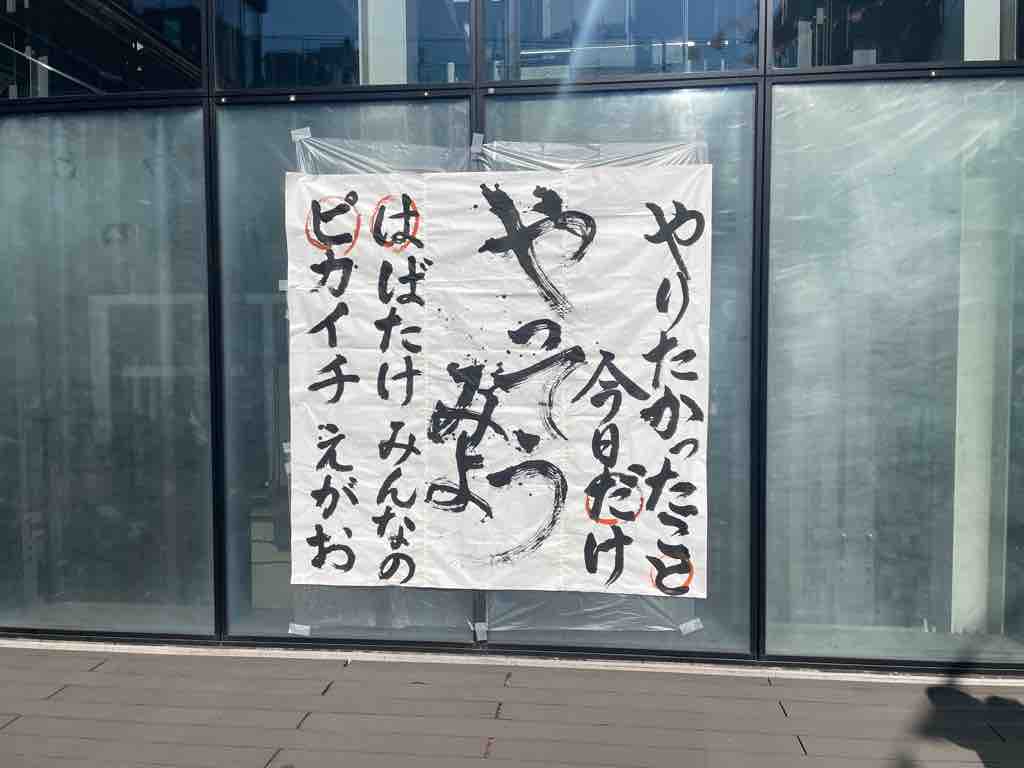 やりたかったこと
今日だけ
やってみよう
はばたけ みんなの
ピカイチ えがお